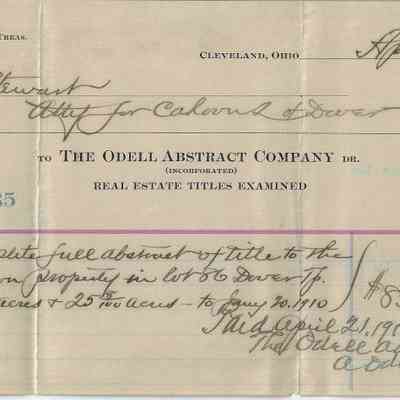 TREAS.
CLEVELAND, OHIO Ap
Stewart
Atty for Cahoun & Dover
TO THE ODELL ABSTRACT COMPANY DR.
(INCORPORATED)
REAL ESTATE TITLES EXAMINED
35
plete full abstract of title to the
property in lot 86 Dover Tp.
acres & 25 /100 acres - to Jany 20, 1910 $8
Paid April 21, 191
The Odell A
A Od